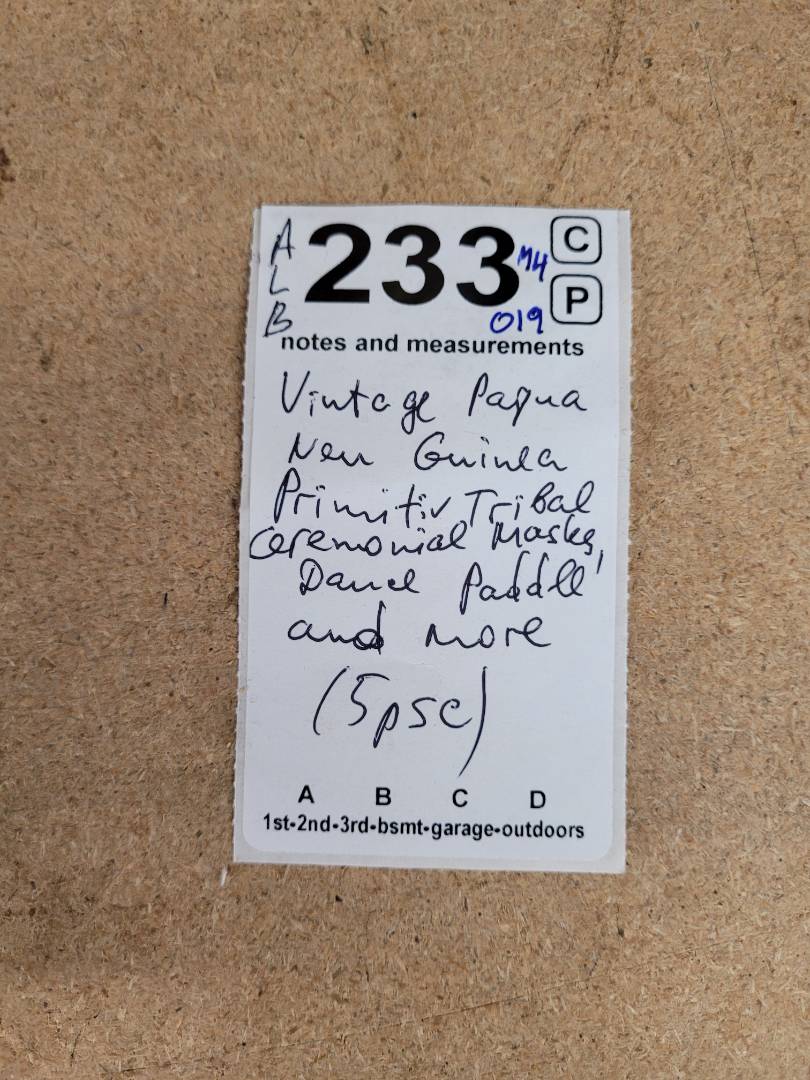 A
L
B
233
M4
019
C
P
notes and measurements
Vintage Papua
New Guinea
Primitiv Tribal
Ceremonial Masks,
Dance Paddle
and more
(5psc)
A B C D
1st-2nd-3rd-bsmt-garage-outdoors